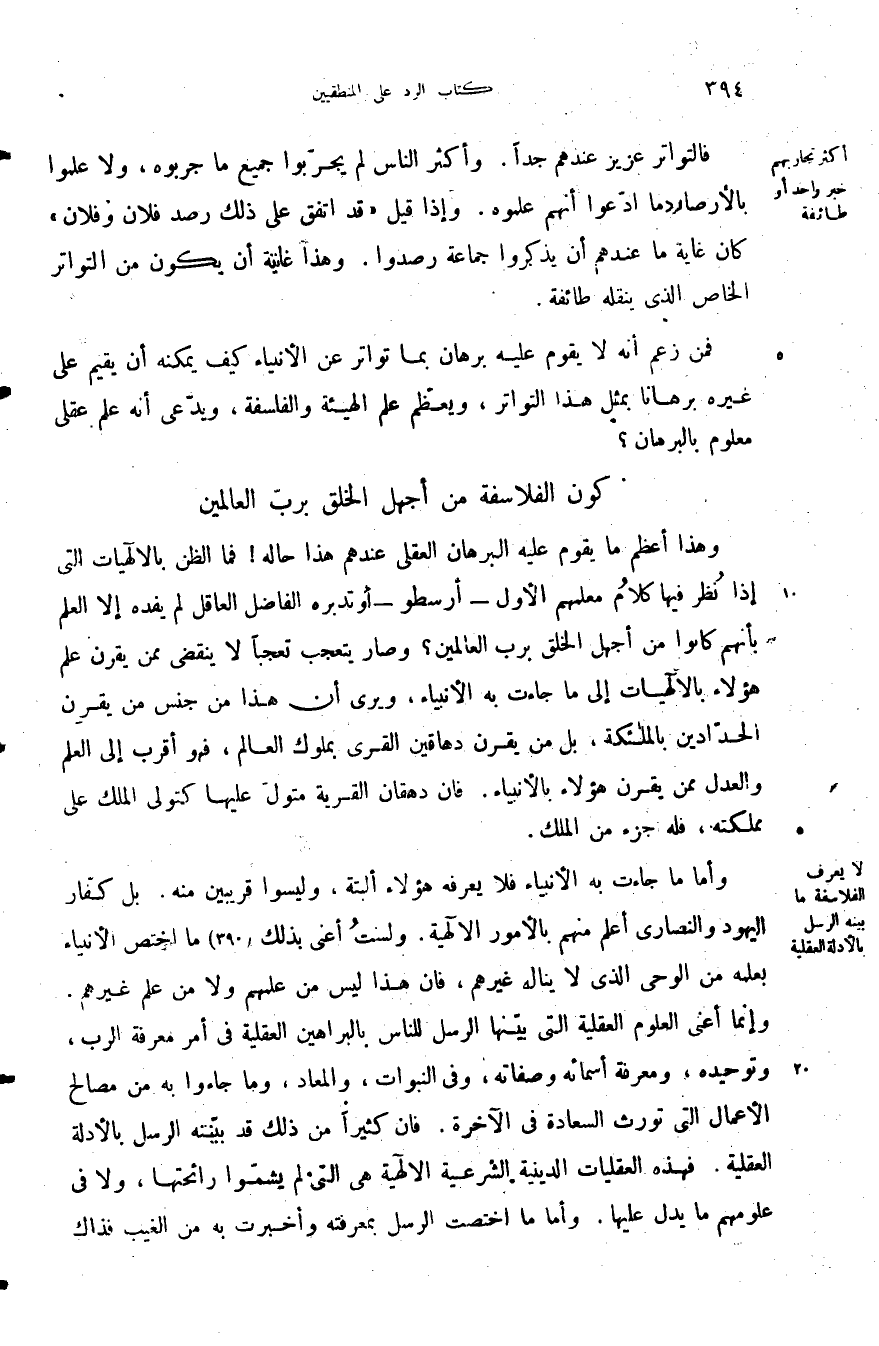 ٣٩٤
كتاب الرد على المنطقيين
أكثر تجاربهم
خبر واحد أو
طائفة
فالتواتر عزيز عندهم جداً. وأكثر الناس لم يجرّبوا جميع ما جربوه، ولا علموا
بالأرصاد ما ادّعوا أنهم علموه. وإذا قيل «قد اتفق على ذلك رصد فلان وفلان»
كان غاية ما عندهم أن يذكروا جماعة رصدوا. وهذا غايته أن يكون من التواتر
الخاص الذى ينقله طائفة.
٥
فمن زعم أنه لا يقوم عليه برهان بما تواتر عن الأنبياء كيف يمكنه أن يقيم على
غيره برهانا بمثل هذا التواتر، ويعظّم علم الهيئة والفلسفة، ويدّعى أنه علم عقلى
معلوم بالبرهان؟
كون الفلاسفة من أجهل الخلق بربّ العالمين
وهذا أعظم ما يقوم عليه البرهان العقلى عندهم هذا حاله! فما الظن بالالٓهيات التى
١٠
إذا نُظر فيها كلامُ معلمهم الأول – أرسطو – وتدبره الفاضل العاقل لم يفده إلا العلم
بأنهم كانوا من أجهل الخلق برب العالمين؟ وصار يتعجب تعجباً لا ينقضى ممن يقرن علم
هؤلاء بالالٓهيات إلى ما جاءت به الأنبياء، ويرى أن هذا من جنس من يقرن
الحدّادين بالملٰئكة، بل من يقرن دهاقين القرى بملوك العالم، فهو أقرب إلى العلم
والعدل ممن يقرن هؤلاء بالأنبياء. فان دهقان القرية متولّ عليها كتولى الملك على
مملكته، فله جزء من الملك.
لا يعرف
الفلاسفة ما
بينه الرسل
بالأدلة العقلية
وأما ما جاءت به الأنبياء فلا يعرفه هؤلاء ألبتة، وليسوا قريبين منه. بل كفار
اليهود والنصارى أعلم منهم بالأمور الالٓهية. ولستُ أعنى بذلك (٣٩٠) ما اختص الأنبياء
بعلمه من الوحى الذى لا يناله غيرهم، فان هذا ليس من علمهم ولا من علم غيرهم.
وإنما أعنى العلوم العقلية التى بيّنها الرسل للناس بالبراهين العقلية فى أمر معرفة الرب،
٢٠
وتوحيده، ومعرفة أسمائه وصفاته، وفى النبوات، والمعاد، وما جاءوا به من مصالح
الأعمال التى تورث السعادة فى الآخرة. فان كثيراً من ذلك قد بيّنته الرسل بالأدلة
العقلية. فهذه العقليات الدينية الشرعية الالٓهية هى التى لم يشمّوا رائحتها، ولا فى
علومهم ما يدل عليها. وأما ما اختصت الرسل بمعرفته وأخبرت به من الغيب فذاك